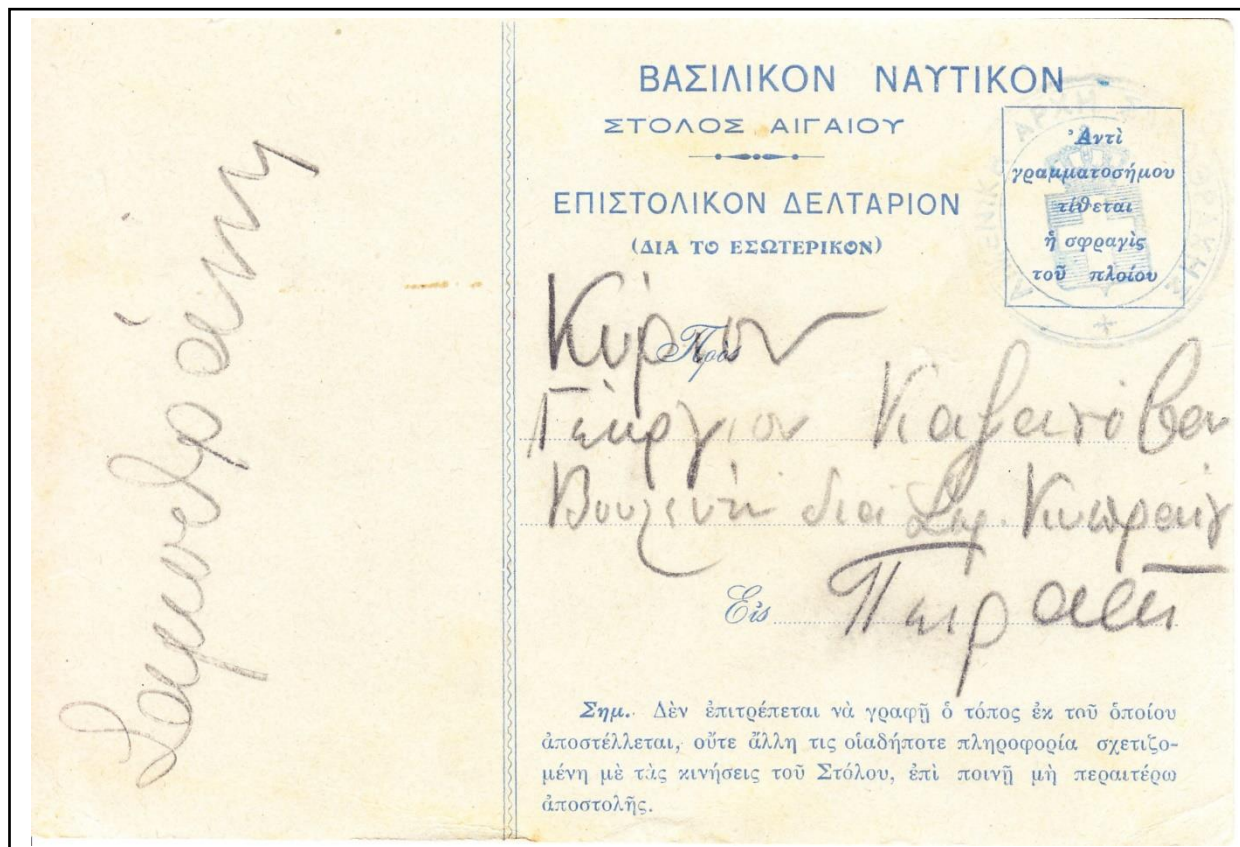 Σαμοθράκη
ΒΑΣΙΛΙΚΟΝ ΝΑΥΤΙΚΟΝ
ΣΤΟΛΟΣ ΑΙΓΑΙΟΥ
ΕΠΙΣΤΟΛΙΚΟΝ ΔΕΛΤΑΡΙΟΝ
(ΔΙΑ ΤΟ ΕΣΩΤΕΡΙΚΟΝ)
Ἀντὶ
γραμματοσήμου
τίθεται
ἡ σφραγὶς
τοῦ πλοίου
Κύριον
Πρὸς
Γεώργιον
Βουλευτὴν διὰ
Εἰς Πειραιᾶ
Σημ. Δὲν ἐπιτρέπεται νὰ γραφῇ ὁ τόπος ἐκ τοῦ ὁποίου
ἀποστέλλεται, οὔτε ἄλλη τις οἱαδήποτε πληροφορία σχετιζο-
μένη μὲ τὰς κινήσεις τοῦ Στόλου, ἐπὶ ποινῇ μὴ περαιτέρω
ἀποστολῆς.